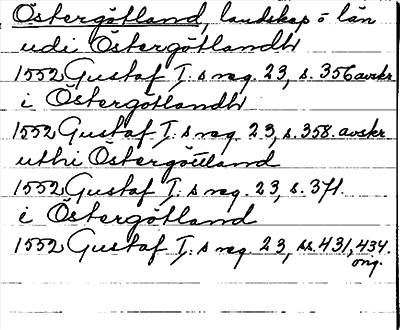 Östergötland, landskap o län
udi Östergötlandh
1552 Gustaf I:s reg. 23, s. 356 avskr
i Östergötlandh
1552 Gustaf I:s reg. 23, s. 358. avskr
uthi Östergöttland
1552 Gustaf I:s reg. 23, s. 371.
i Östergötland
1552 Gustaf I:s reg. 23, ss. 431, 434.
orig.